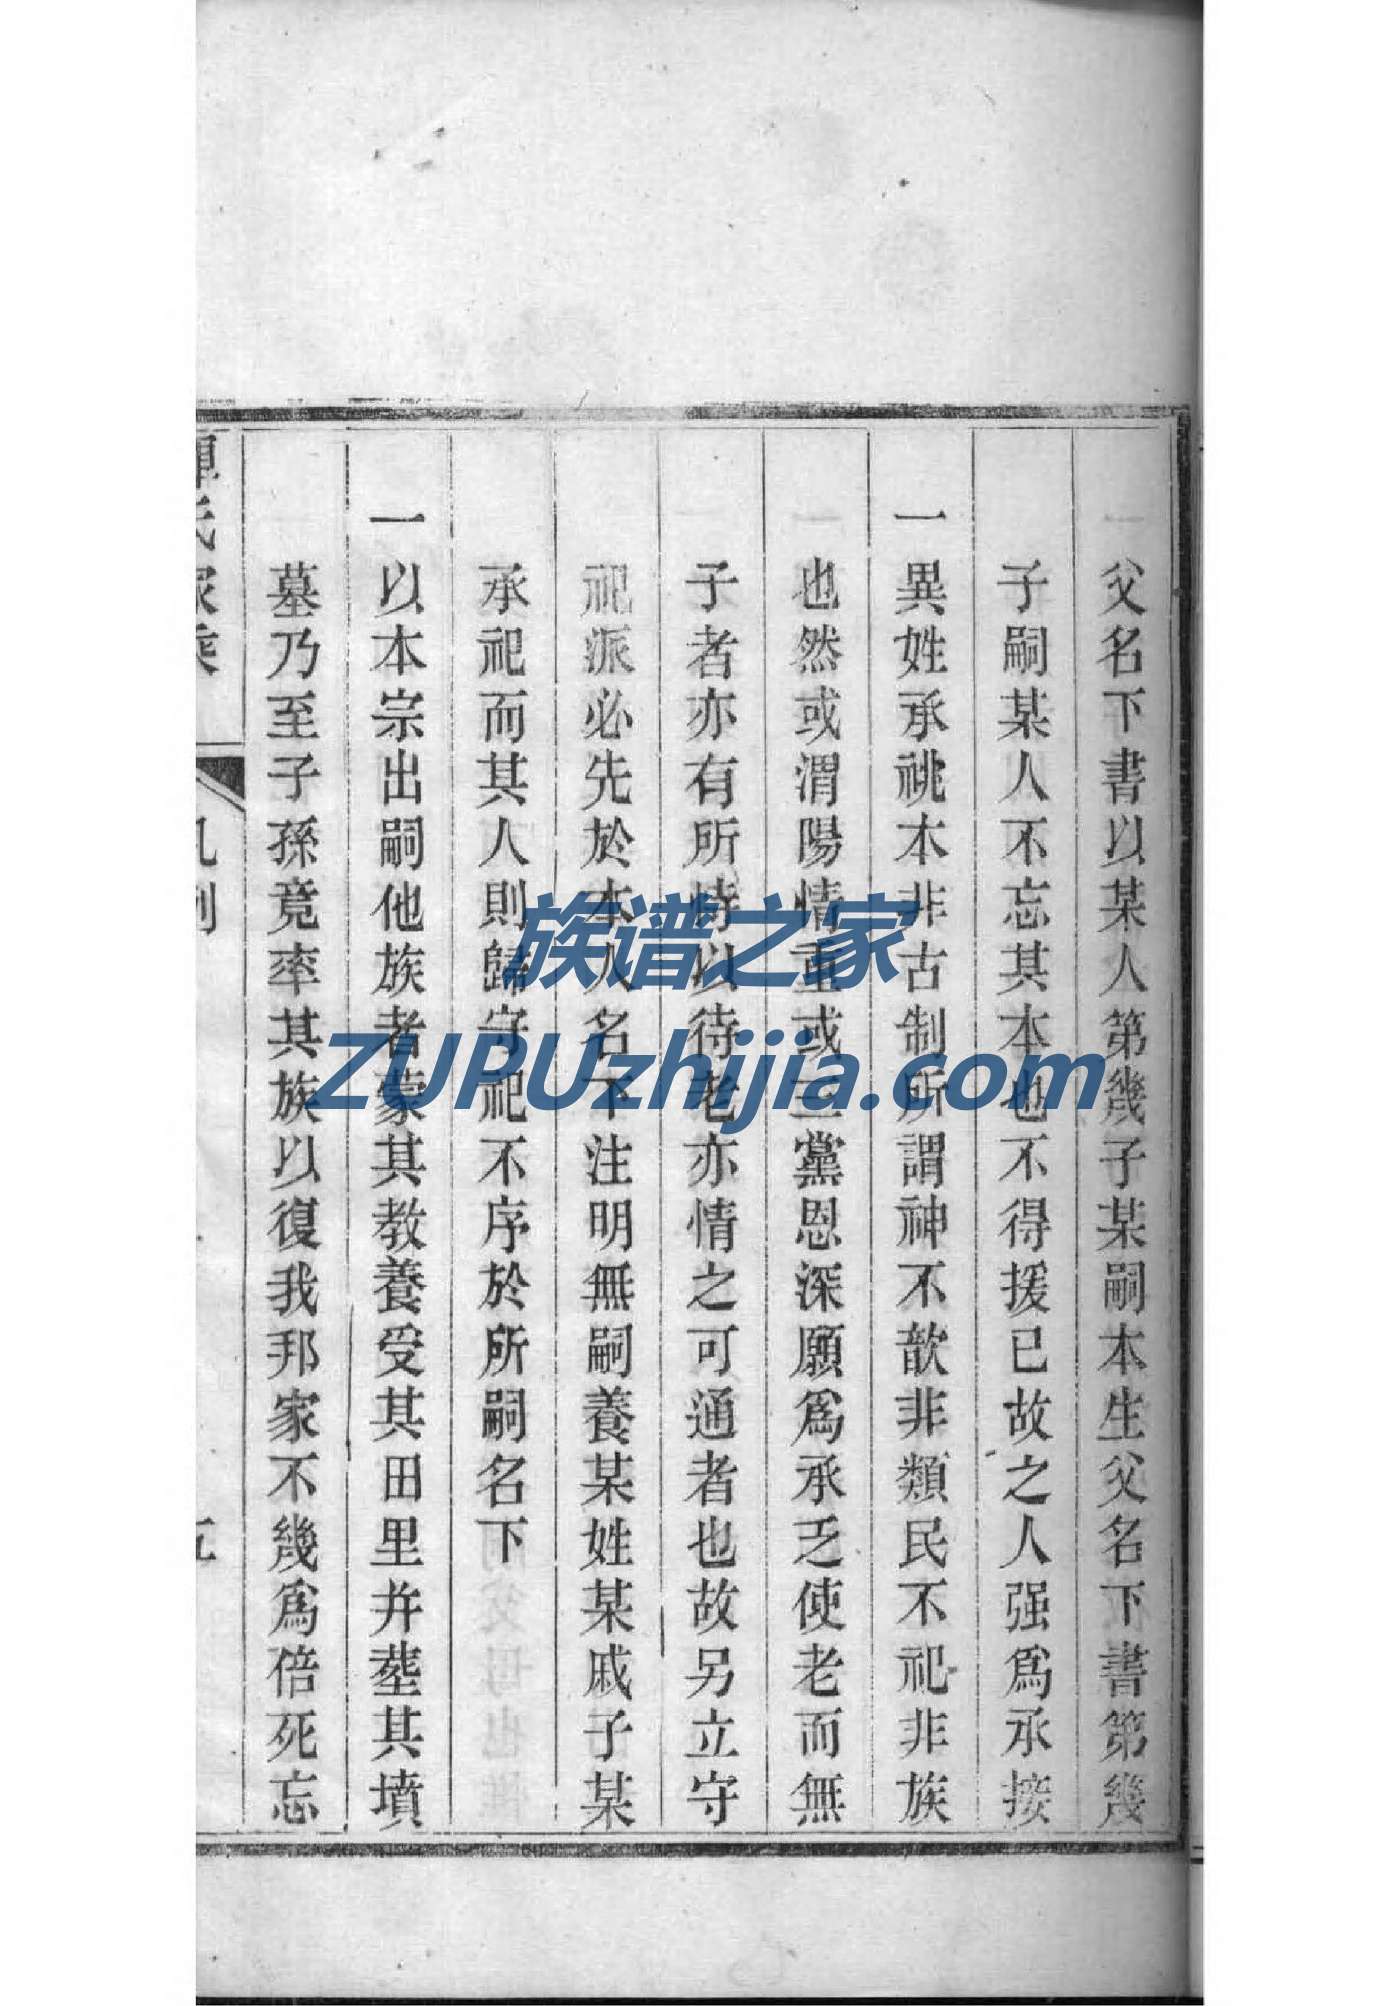 父名下書以某人第幾子某嗣本生父名下書第幾
子嗣某人不忘其本也不得援已故之人强爲承接
一異姓承祧本非古制所謂神不歆非類民不祀非族
也然或渭陽情重或三黨恩深願爲承乏使老而無
子者亦有所恃以待老亦情之可通者也故另立守
祀派必先於本人名下注明無嗣養某姓某戚子某
承祀而其人則歸守祀不序於所嗣名下
一以本宗出嗣他族者蒙其教養受其田里幷塟其墳
墓乃至子孫竟率其族以復我邦家不幾爲倍死忘
氏家乘
凡例
五
族谱之家
ZUPUzhijia.com